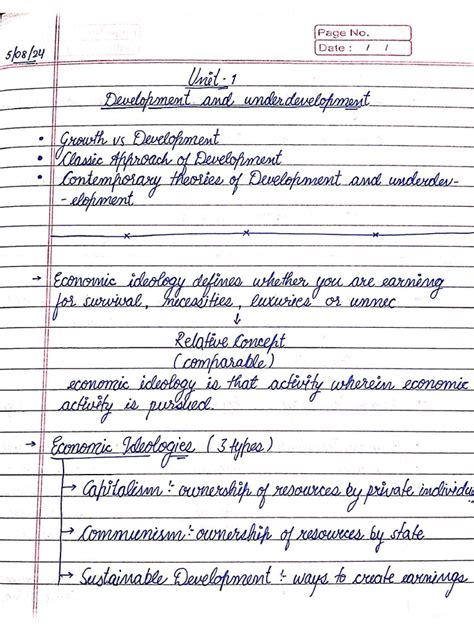 Page No.
Date : / /
5/08/24
Unit - 1
Development and underdevelopment
• Growth vs Development
• Classic Approach of Development
• Contemporary theories of Development and underdev-
-elopment
→ Economic ideology defines whether you are earning
for survival, necessities, luxuries or unnec
↓
Relative Concept
(comparable)
economic ideology is that activity wherein economic
activity is pursued.
→ Economic Ideologies (3 types)
→ Capitalism :- ownership of resources by private individu
→ Communism :- ownership of resources by state
→ Sustainable Development :- ways to create earnings